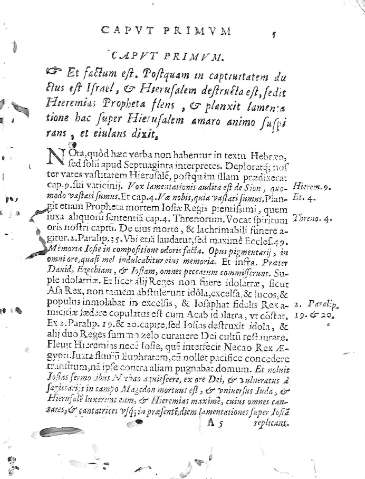 CAPVT PRIMVM 5
CAPVT PRIMVM.
☞ Et factum est. Postquam in captiuitatem du
ctus est Israel, & Hierusalem destructa est, sedit
Hieremias Propheta flens, & planxit lamenta
tione hac super Hierusalem amaro animo suspi
rans, et eiulans dixit.
NOta, quòd hæc verba non habentur in textu Hebræo,
sed solū apud Septuaginta interpretes. Deploratq; no
ster vates vastitatem Hierusalē, postquam illam prædixerat
cap. 9. sui vaticinij. Vox lamentationis audita est de Sion, quo- Hierem. 9.
modo vastati sumus. Et cap. 4. Væ nobis, quia vastati sumus. Plan- Et. 4.
git etiam Propheta mortem Iosiæ Regis pientissimi, quem
iuxa aliquorū sententiā cap. 4. Threnorum. Vocat spiritum Threno. 4.
oris nostri captū. De eius morte, & lachrimabili funere a-
gitur. 2. Paralip. 35. Vbi etiā laudatur, sed maximè Eccles. 49.
Memoria Iosiæ in compositione odoris facta. Opus pigmentarij, in
omni ore, quasi mel indulcabitur eius memoria. Et infra. Præter
Dauid, Ezechiam, & Iosiam, omnes peccatum commisserunt. Su-
ple idolatriæ. Et licet alij Reges non fuere idolatræ, sicut
Asa Rex, non tamen abstulerunt idola, excelsa, & lucos, &
populus inmolabat in excelsis, & Iosaphat fidelis Rex a- 2. Paralip.
micitiæ fœdere copulatus est cum Acab idolatra, vt cōstat. 19. & 20.
Ex 2. Paralip. 19. & 20. capite, sed Iosias destruxit idola, &
alij duo Reges summo zelo curauere Dei cultū restaurare.
Fleuit Hieremias necē Iosiæ, quē interfecit Necao Rex Æ-
gypti. Iuxta fluuiū Euphratem, cū nollet pacifice concedere
transitum, nā ipse contra aliam pugnabat domum. Et noluit
Iosias sermonibus Necao aquiescere, ex ore Dei, & vulneratus à
sagittarijs in campo Magedon mortuus est, & vniuersus Iuda, &
Hierusalē luxerunt eum, & Hieremias maximè, cuius omnes can-
tores, & cantatrices vsq; in præsentē diem lamentationes super Iosiā
A 5 replicant.